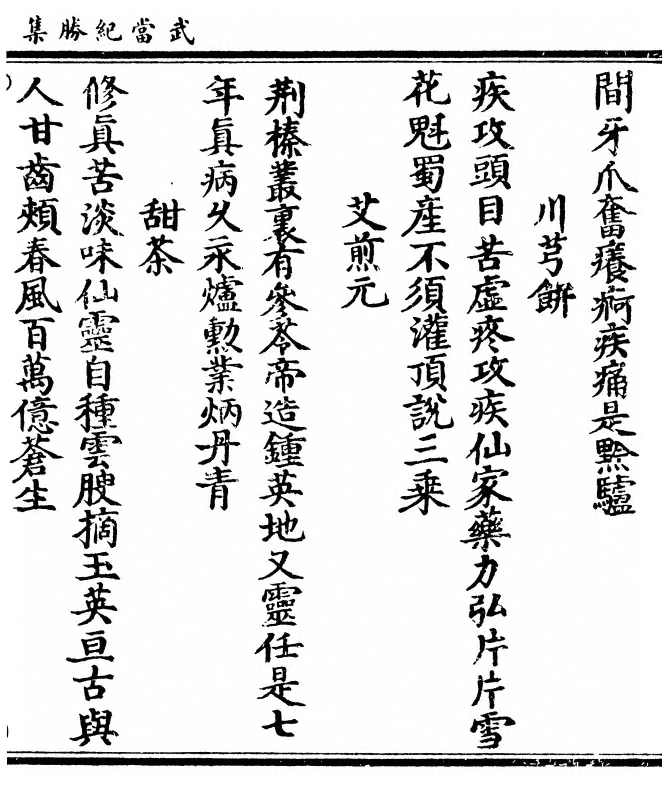 武當紀勝集
間牙爪奮癢疴疾痛是黔驢
川芎餅
疾攻頭目苦虛疼攻疾仙家藥力弘片片雪
花魁蜀產不須灌頂說三乘
艾煎元
荆榛叢裏有參苓帝造鍾英地又靈任是七
年眞病久永爐勲業炳丹青
甜茶
修眞苦淡味仙靈自種雲腴摘玉英亘古與
人甘齒頰春風百萬億蒼生